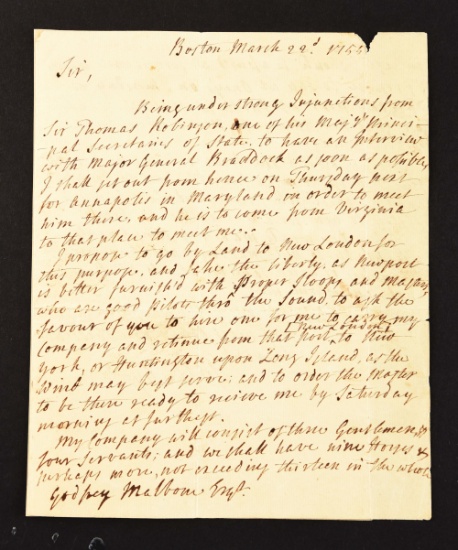 Boston March 22d. 1755
Sir,
Being under strong Injunctions from
Sir Thomas Robinson, one of his Majty's Princi-
-pal Secretaries of State, to have an Interview
with Major General Braddock as soon as possible,
I shall set out from hence on Thursday next
for Annapolis in Maryland in order to meet
him there, and he is to come from Virginia
to that place to meet me.
I propose to go by Land to New London for
this purpose, and take the liberty, as Newport
is better furnish'd with Proper Sloops, and Masters
who are good Pilots thro the Sound, to ask the
favour of you to hire one for me to carry my
Company and retinue from that port [New London] to New
York, or Huntington upon Long Island, as the
Wind may best serve; and to order the Master
to be there ready to recieve me by Saturday
morning at furthest.
My Company will consist of three Gentlemen, &
four Servants; and we shall have nine Horses &
perhaps more, not exceeding thirteen in the whole
Godfrey Malbone Esqr.